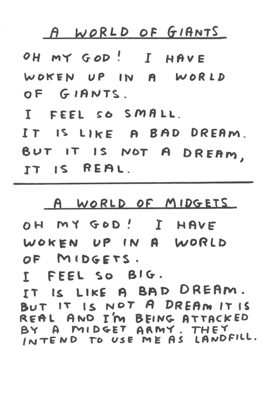 A WORLD OF GIANTS
OH MY GOD! I HAVE
WOKEN UP IN A WORLD
OF GIANTS.
I FEEL SO SMALL.
IT IS LIKE A BAD DREAM.
BUT IT IS NOT A DREAM,
IT IS REAL.
A WORLD OF MIDGETS
OH MY GOD! I HAVE
WOKEN UP IN A WORLD
OF MIDGETS.
I FEEL SO BIG.
IT IS LIKE A BAD DREAM.
BUT IT IS NOT A DREAM IT IS
REAL AND I'M BEING ATTACKED
BY A MIDGET ARMY. THEY
INTEND TO USE ME AS LANDFILL.